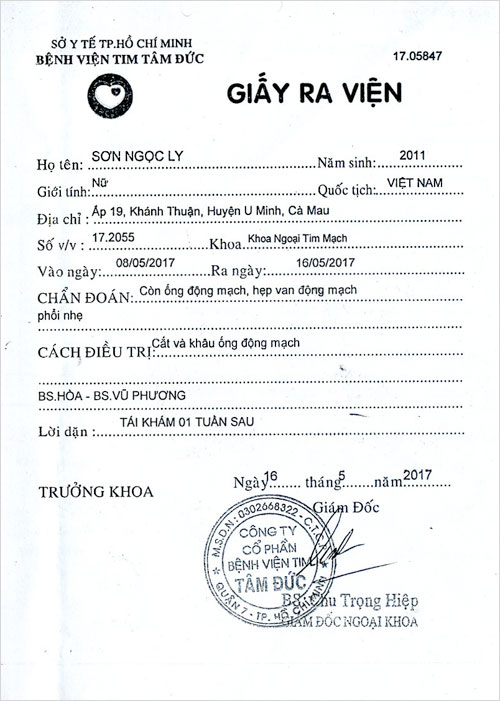 SỞ Y TẾ TP.HỒ CHÍ MINH
BỆNH VIỆN TIM TÂM ĐỨC
17.05847
GIẤY RA VIỆN
Họ tên: SƠN NGỌC LY Năm sinh: 2011
Giới tính: Nữ Quốc tịch: VIỆT NAM
Địa chỉ : Ấp 19, Khánh Thuận, Huyện U Minh, Cà Mau
Số v/v : 17.2055 Khoa Khoa Ngoại Tim Mạch
Vào ngày: 08/05/2017 Ra ngày: 16/05/2017
CHẨN ĐOÁN: Còn ống động mạch, hẹp van động mạch
phổi nhẹ
CÁCH ĐIỀU TRỊ: Cắt và khâu ống động mạch
BS.HÒA - BS.VŨ PHƯƠNG
Lời dặn : TÁI KHÁM 01 TUẦN SAU
Ngày 16 tháng 5 năm 2017
TRƯỞNG KHOA
Giám Đốc
M.S.D.N : 0302668322 - C.T.C.P
CÔNG TY
CỔ PHẦN
BỆNH VIỆN TIM
TÂM ĐỨC
QUẬN 7 - TP. HỒ CHÍ MINH
BS. Chu Trọng Hiệp
GIÁM ĐỐC NGOẠI KHOA